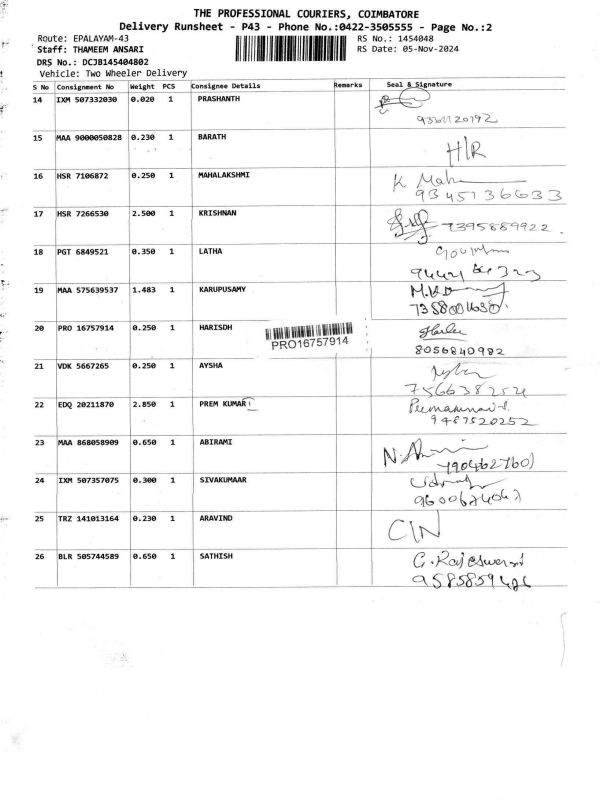 THE PROFESSIONAL COURIERS, COIMBATORE
Delivery Runsheet - P43 - Phone No.:0422-3505555 - Page No.:2
Route: EPALAYAM-43 RS No.: 1454048
Staff: THAMEEM ANSARI RS Date: 05-Nov-2024
DRS No.: DCJB145404802
Vehicle: Two Wheeler Delivery
S No Consignment No Weight PCS Consignee Details Remarks Seal & Signature
14 IXM 507332030 0.020 1 PRASHANTH
15 MAA 9000050828 0.230 1 BARATH H/R
16 HSR 7106872 0.250 1 MAHALAKSHMI K Mah
9345136633
17 HSR 7266530 2.500 1 KRISHNAN 7395889922.
18 PGT 6849521 0.350 1 LATHA
19 MAA 575639537 1.483 1 KARUPUSAMY
20 PRO 16757914 0.250 1 HARISDH
PRO16757914
8056840982
21 VDK 5667265 0.250 1 AYSHA
7566382524
22 EDQ 20211870 2.850 1 PREM KUMAR
9487520252
23 MAA 868058909 0.650 1 ABIRAMI
7904627601
24 IXM 507357075 0.300 1 SIVAKUMAAR
25 TRZ 141013164 0.230 1 ARAVIND C/N
26 BLR 505744589 0.650 1 SATHISH G. Rajeswari